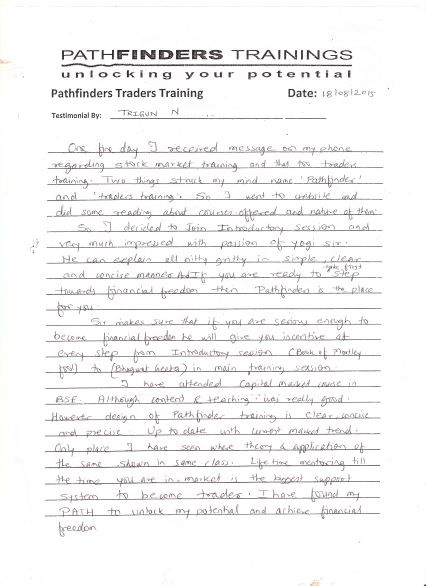 PATHFINDERS TRAININGS
unlocking your potential
Pathfinders Traders Training Date: 18/08/2015
Testimonial By: TRIGUN N
One fine day I received message on my phone
regarding stock market training and that too traders
training. Two things struck my mind name 'Pathfinder'
and 'traders training'. So I went to website and
did some reading about courses offered and nature of them
So I decided to Join Introductory session and
very much impressed with passion of yogi sir.
He can explain all nitty gritty in simple, clear
and concise manner. And If you are ready to take first step
towards financial freedom then Pathfinder is the place
for you.
Sir makes sure that if you are serious enough to
become financial freedom he will give you incentive at
every step from Introductory session (Book of Motley
fool) to (Bhagvat Geeta) in main training session.
I have attended Capital market course in
BSE. Although content & teaching was really good.
However design of Pathfinder training is clear, concise
and precise. Up to date with current market trend.
Only place I have seen where theory & application of
the same shown in same class. Life time mentoring till
the time you are in market is the biggest support
system to become trader. I have found my
PATH to unlock my potential and achieve financial
freedom